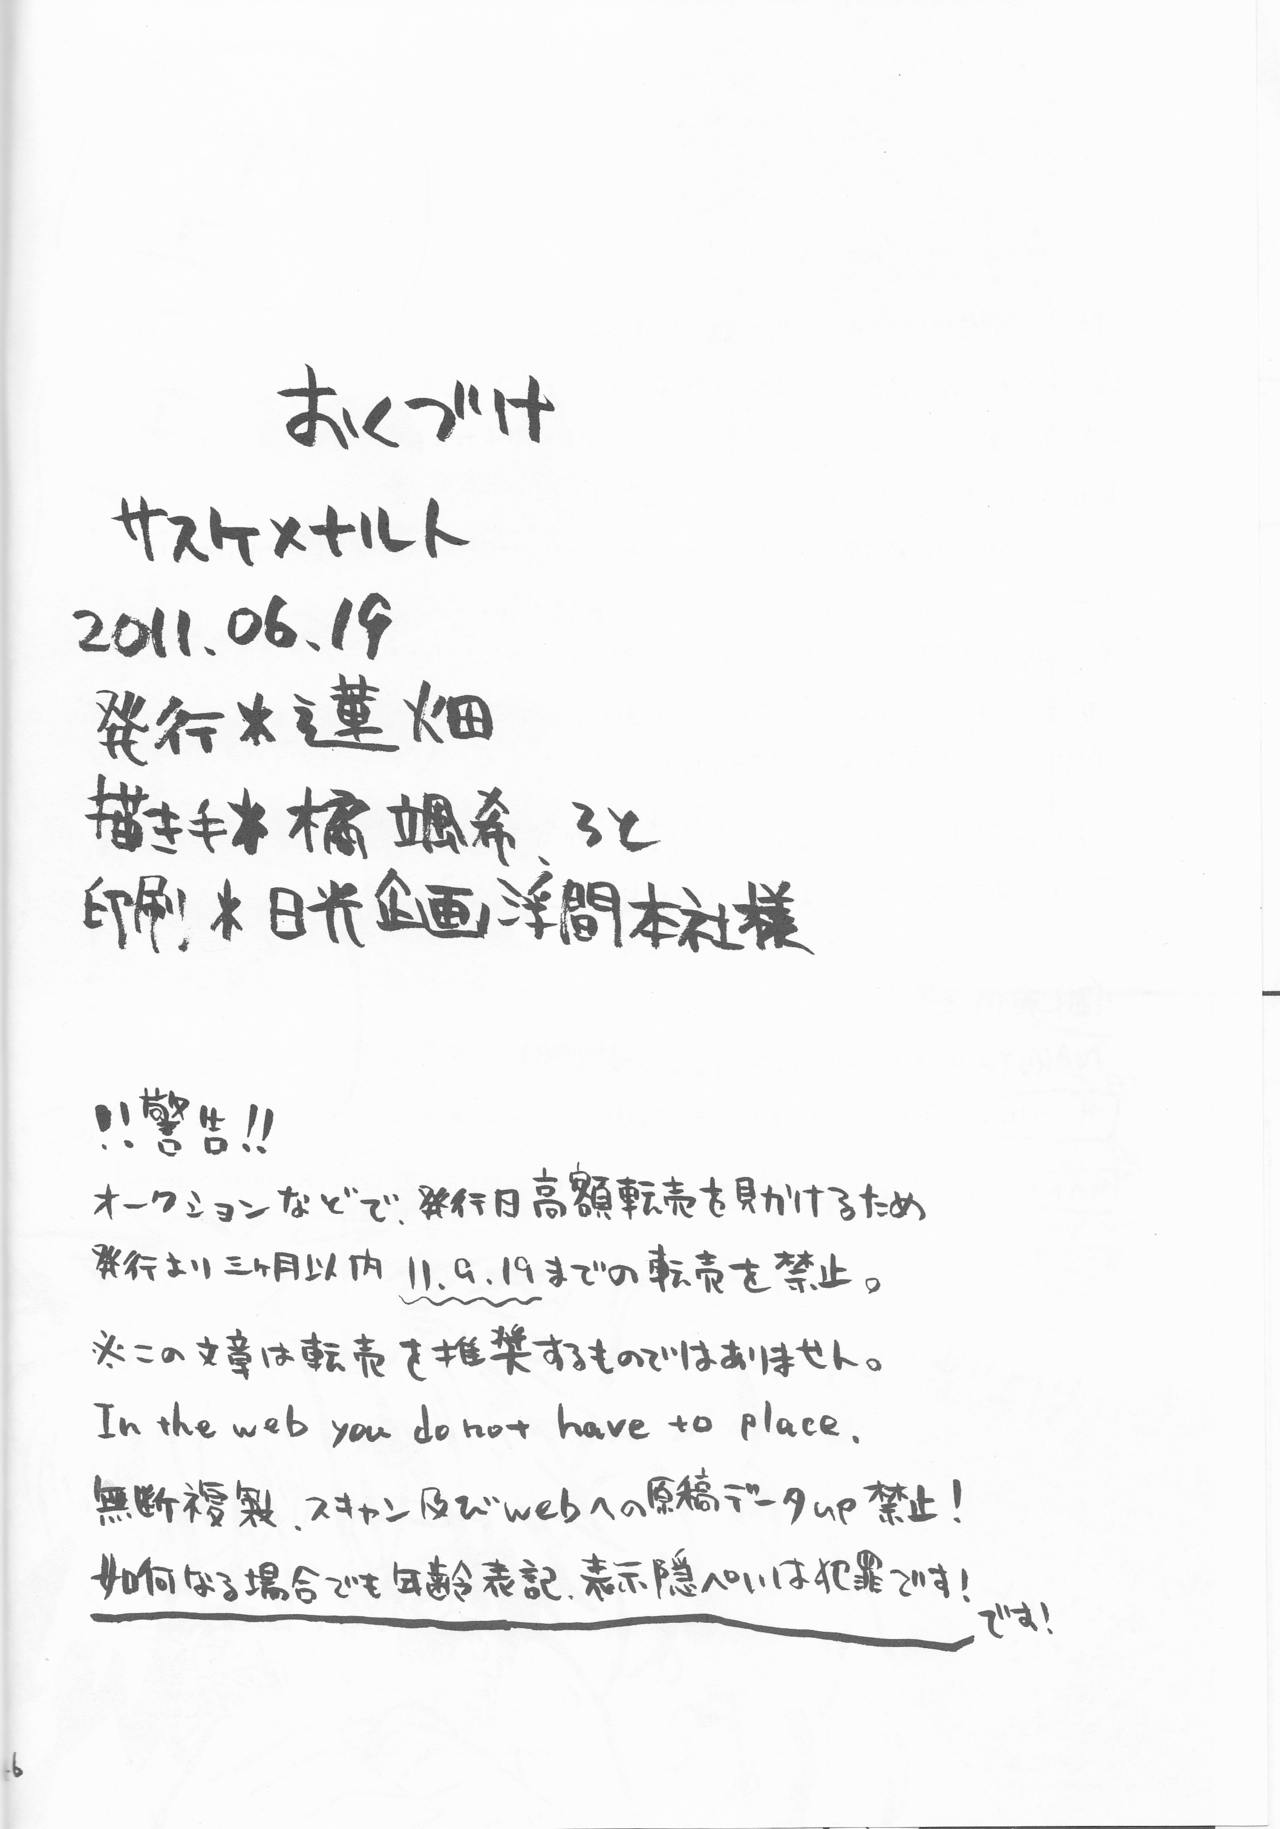 おくづけ
サスケ×ナルト
2011.06.19
発行*蓮畑
描き手*橘 颯希、ろと
印刷*日光企画浮間本社様
!!警告!!
オークションなどで、発行日高額転売を見かけるため
発行より三ヶ月以内 11.9.19までの転売を禁止。
※この文章は転売を推奨するものではありません。
In the web you do not have to place.
無断複製、スキャン及びwebへの原稿データup禁止!
如何なる場合でも年齢表記、表示隠ぺいは犯罪です!
です!